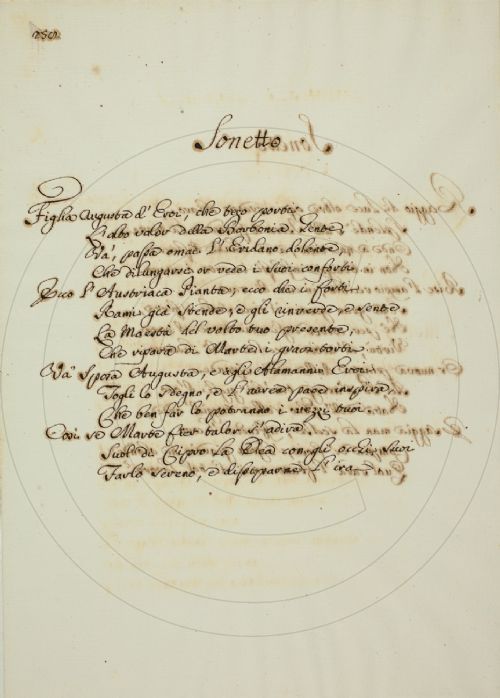 Sonetto
Figlia Augusta d'Eroi, che teco porti
L'alto valor della Borbonia Gente,
Và, passa omai l'Eridano dolente,
Che dilungarse or vede i suoi conforti.
Ecco l'Austriaca Pianta, ecco che i forti
Rami già stende, e gli inverde, e sente
La Maestà del volto tuo presente,
Che ripara di Marte i gravi torti.
Và Sposa Augusta, e agli Alamanni Eroi
Togli lo sdegno, e l'aurea pace inspira,
Che ben far lo potranno i vezzi tuoi.
Così se Marte fier talor s'adira
Suol di Cipro la Dea con gli occhi suoi
Farlo sereno, e dissiparne l'ira.